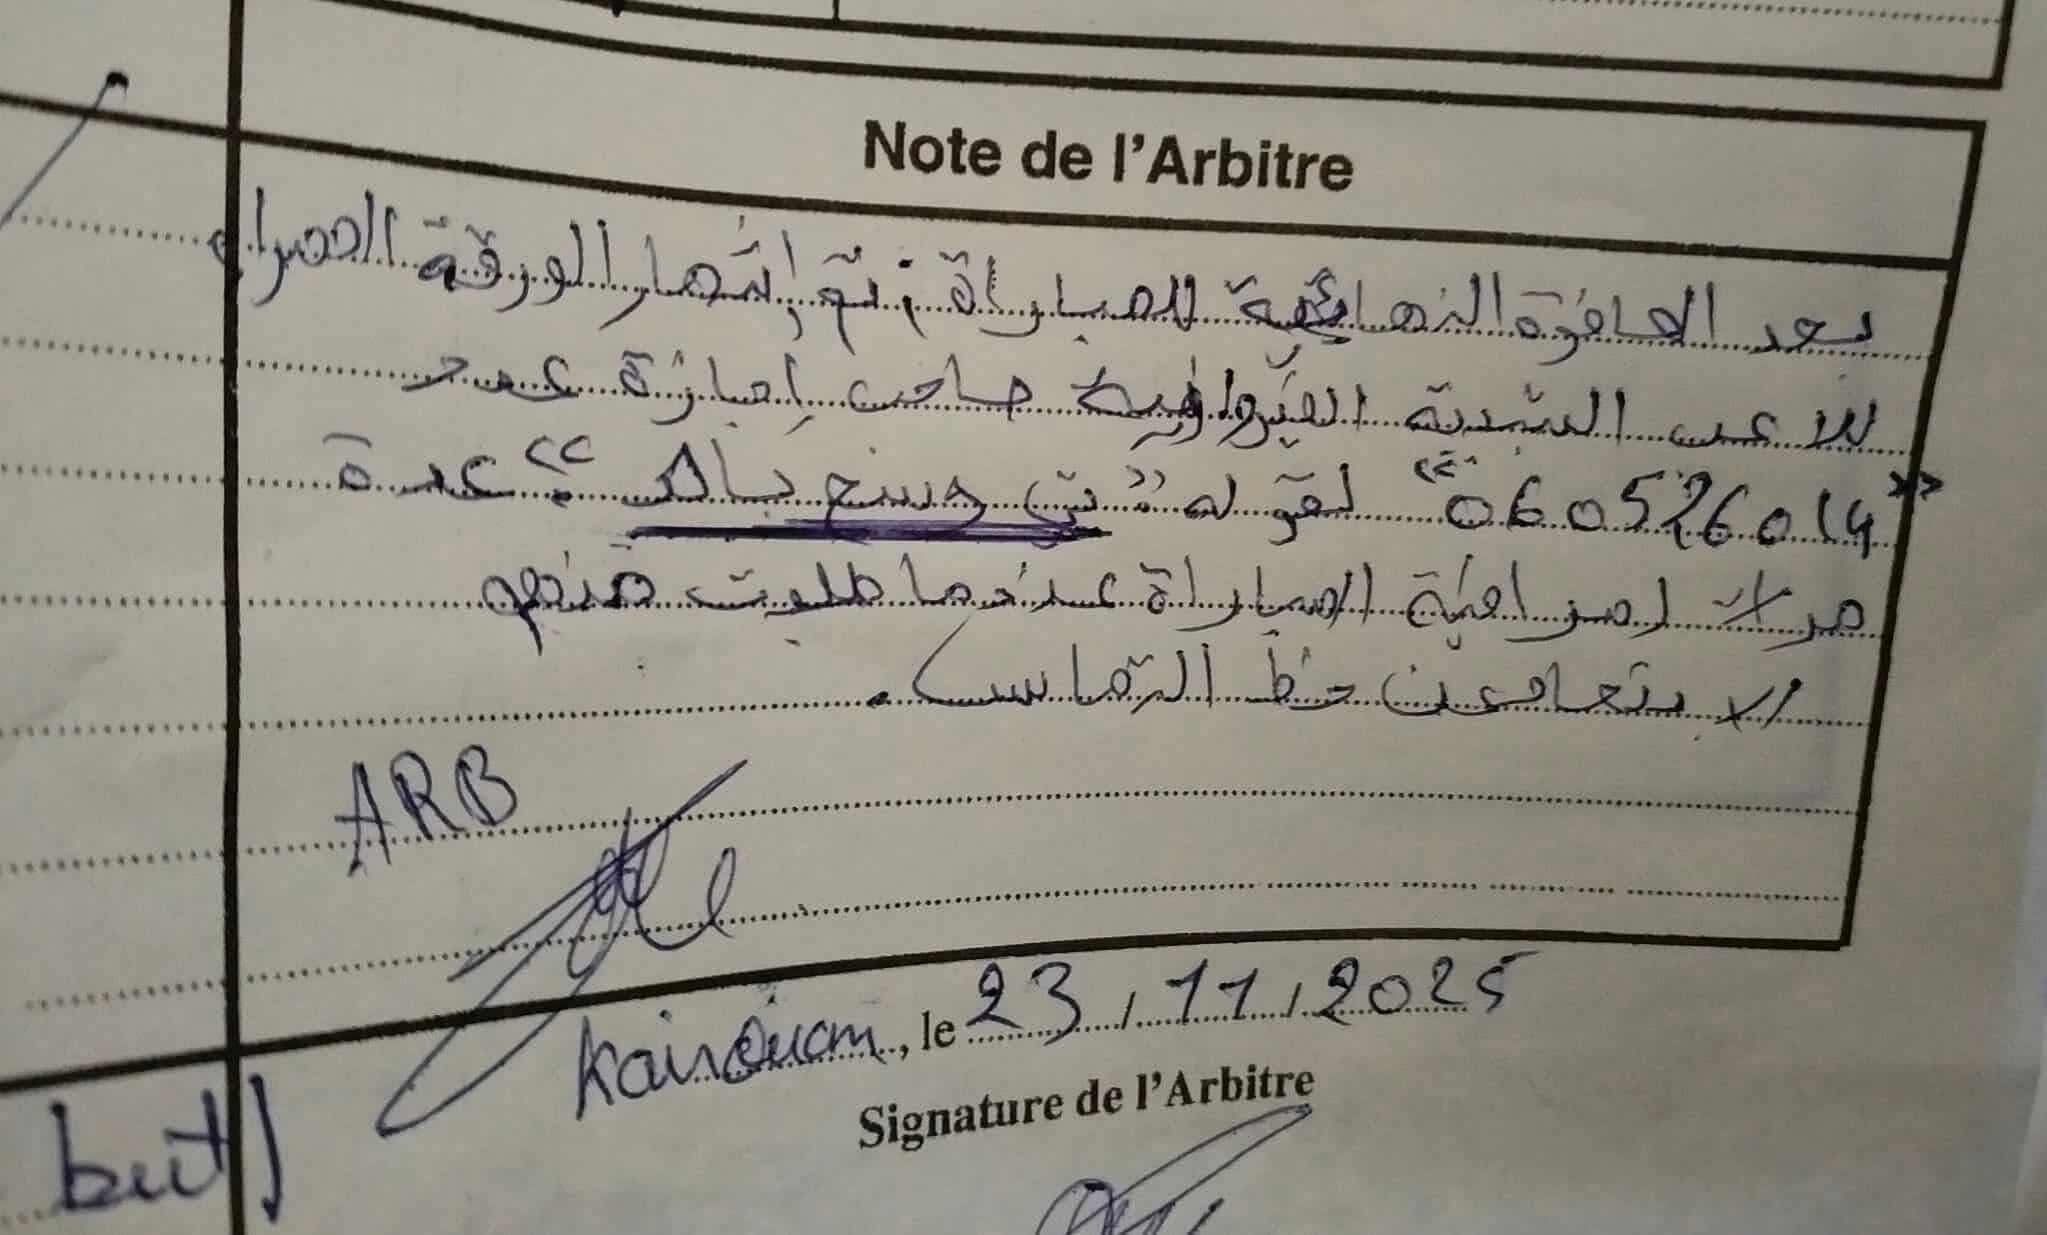 Note de l'Arbitre
بعد الصافرة النهائية للمباراة، تم إشهار الورقة الحمراء
للاعب الشبيبة القيروانية صاحب إجازة عدد
«060526014» لقوله "تي حسنو بالك" عدة
مرات لمراقبة المباراة عندما طلبت منهم
الابتعاد عن خط التماس.
ARB
Kairouan, le 23/11/2025
Signature de l'Arbitre
but